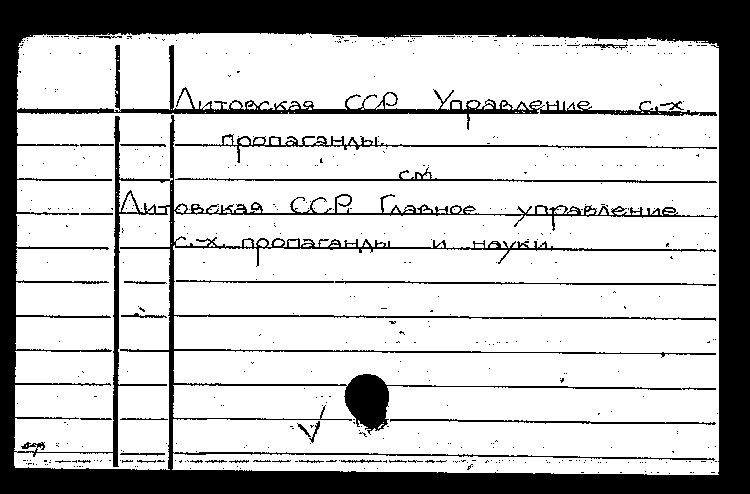 Литовская ССР. Управление с.-х.
пропаганды.
см.
Литовская ССР. Главное управление
с.-х. пропаганды и науки.